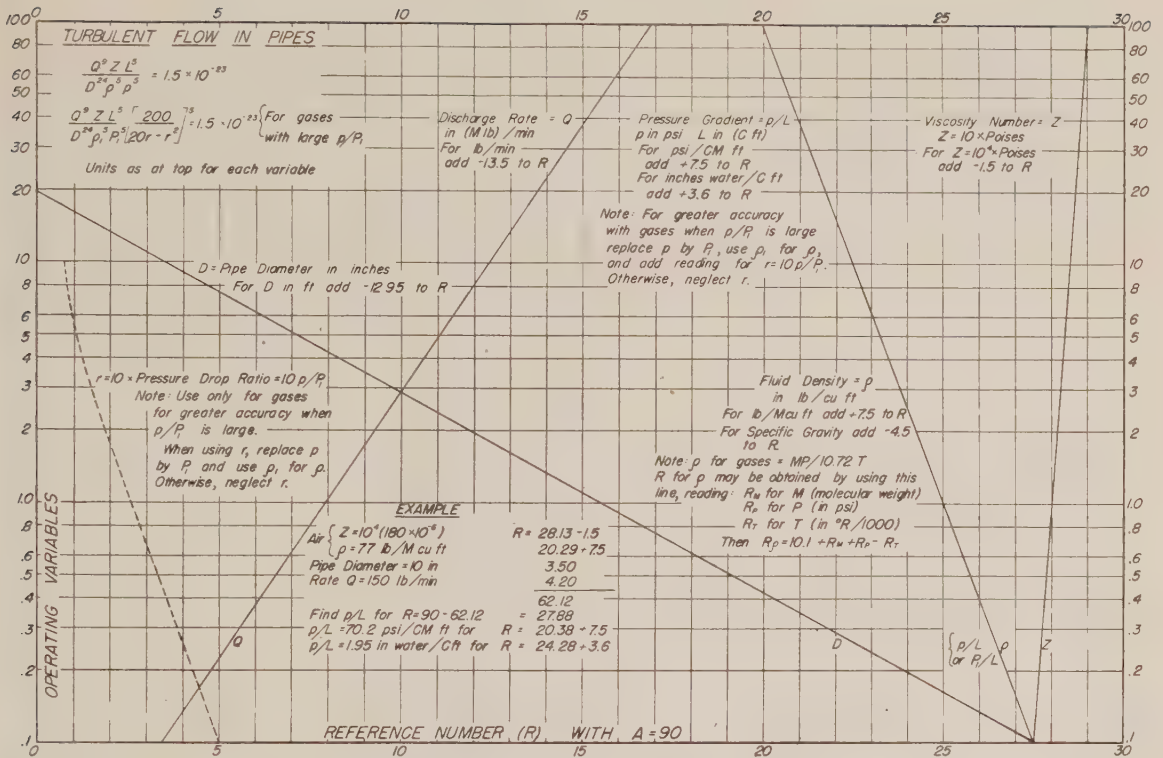 0 5 10 15 20 25 30
100 80 60 50 40 30 20 10 8 6 5 4 3 2 1.0 .8 .6 .5 .4 .3 .2 .1
OPERATING VARIABLES
TURBULENT FLOW IN PIPES
Q⁹ Z L⁵ / D²⁴ ρ⁵ p⁵ = 1.5 × 10⁻²³
Q⁹ Z L⁵ / D²⁴ ρ₁⁵ P₁⁵ [200 / 20r - r²]⁵ = 1.5 × 10⁻²³ { For gases
with large p/P₁
Units as at top for each variable
Discharge Rate = Q
in (M lb) / min
For lb/min
add -13.5 to R
Pressure Gradient = p/L
p in psi L in (C ft)
For psi/CM ft
add +7.5 to R
For inches water/C ft
add +3.6 to R
Note: For greater accuracy
with gases when p/P₁ is large
replace p by P₁, use ρ₁ for ρ,
and add reading for r=10 p/P₁.
Otherwise, neglect r.
Viscosity Number = Z
Z = 10 × Poises
For Z=10⁴ × Poises
add -1.5 to R
D = Pipe Diameter in inches
For D in ft add -12.95 to R
r=10 × Pressure Drop Ratio =10 p/P₁
Note: Use only for gases
for greater accuracy when
p/P₁ is large.
When using r, replace p
by P₁ and use ρ₁ for ρ.
Otherwise, neglect r.
Fluid Density = ρ
in lb/cu ft
For lb/Mcu ft add +7.5 to R
For Specific Gravity add -4.5
to R
Note: ρ for gases = MP/10.72 T
R for ρ may be obtained by using this
line, reading: R_M for M (molecular weight)
R_P for P (in psi)
R_T for T (in °R/1000)
Then Rρ=10.1 + R_M + R_P - R_T
EXAMPLE
Air { Z=10⁴(180 × 10⁻⁶) R = 28.13 -1.5
ρ = 77 lb/M cu ft 20.29 +7.5
Pipe Diameter = 10 in 3.50
Rate Q = 150 lb/min 4.20
62.12
Find p/L for R=90-62.12 = 27.88
p/L = 70.2 psi/CM ft for R = 20.38 +7.5
p/L = 1.95 in water/Cft for R = 24.28 +3.6
Q
D
{ p/L
or P₁/L
ρ
Z
REFERENCE NUMBER (R) WITH A=90
0 5 10 15 20 25 30
100 80 60 50 40 30 20 10 8 6 5 4 3 2 1.0 .8 .6 .5 .4 .3 .2 .1